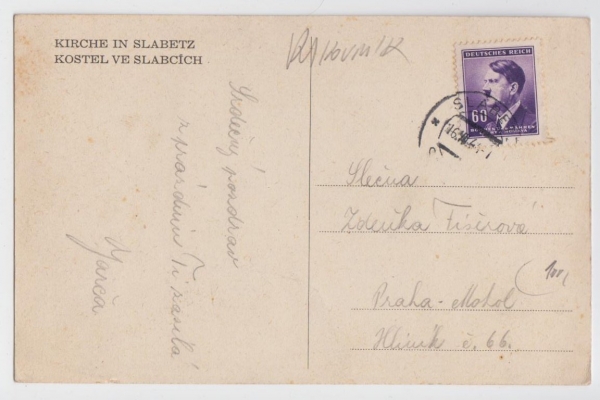 KIRCHE IN SLABETZ
KOSTEL VE SLABCÍCH
Srdečný pozdrav
z prázdnin Ti zasílá
Jarča
DEUTSCHES REICH
60
Slečna
Zdeňka Fišerová
Praha-Motol
Hliník č. 66.
100,